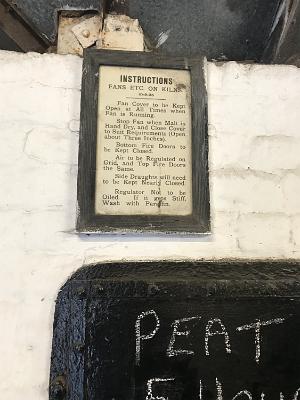 INSTRUCTIONS
FANS ETC. ON KILNS.
Fan Cover to be Kept
Open at All Times when
Fan is Running.
Stop Fan when Malt is
Hand Dry, and Close Cover
to Suit Requirements (Open
about Three Inches).
Bottom Fire Doors to
be Kept Closed.
Air to be Regulated on
Grid, and Top Fire Doors
the Same.
Side Draughts will need
to be Kept Nearly Closed.
Regulator Not to be
Oiled. If it gets Stiff,
Wash with Paraffin.
PEAT
5 Hour